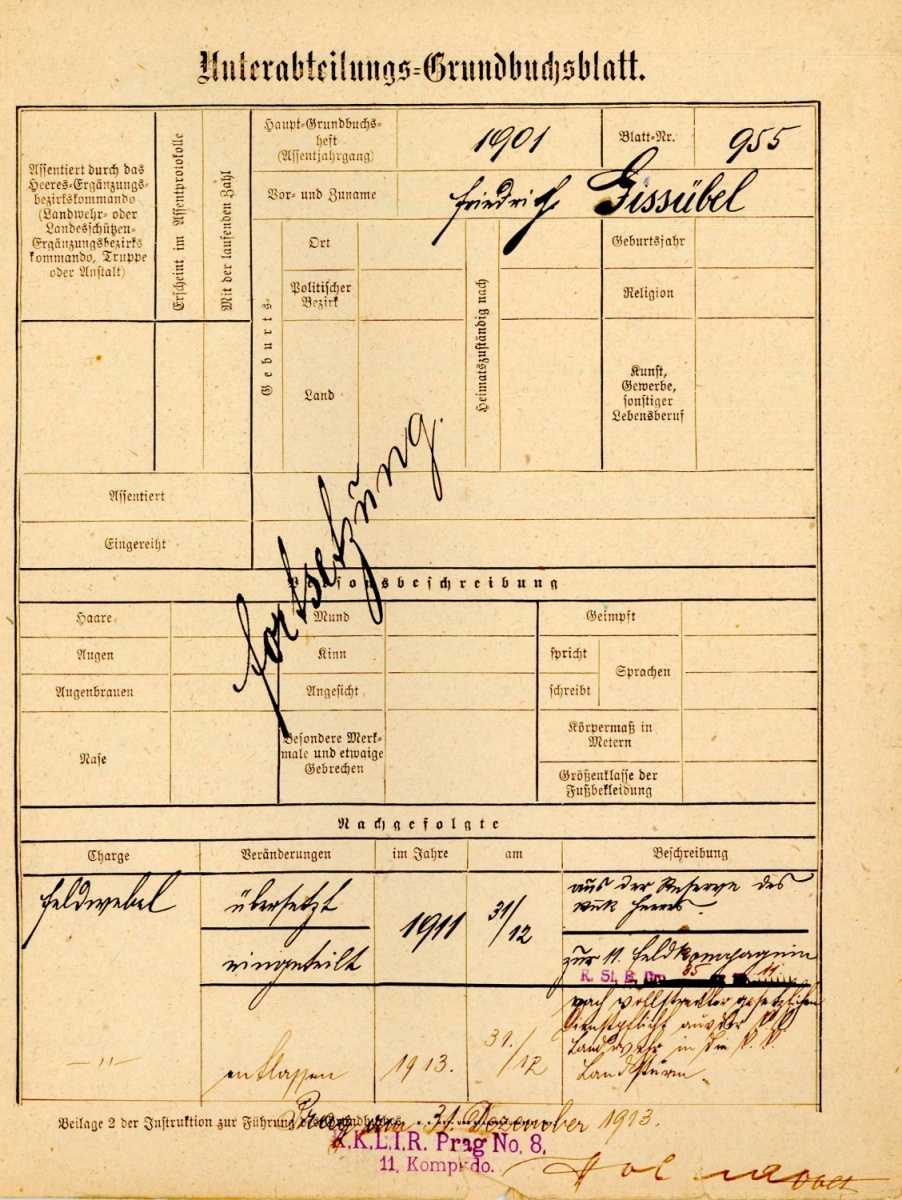 Unterabteilungs-Grundbuchsblatt.
Assentiert durch das
Heeres-Ergänzungs-
bezirkskommando
(Landwehr- oder
Landesschützen-
Ergänzungsbezirks
kommando, Truppe
oder Anstalt)
Erscheint im Assentprotokolle
Mit der laufenden Zahl
Haupt-Grundbuchs-
heft
(Assentjahrgang)
1901
Blatt-Nr.
955
Vor- und Zuname
Friedrich Gissübel
Geburts-
Ort
Politischer
Bezirk
Land
Heimatszuständig nach
Geburtsjahr
Religion
Kunst,
Gewerbe,
sonstiger
Lebensberuf
Assentiert
Eingereiht
Fortsetzung.
Personsbeschreibung
Haare
Augen
Augenbrauen
Nase
Mund
Kinn
Angesicht
Besondere Merk-
male und etwaige
Gebrechen
Geimpft
spricht
schreibt
Sprachen
Körpermaß in
Metern
Größenklasse der
Fußbekleidung
Nachgefolgte
Charge
Veränderungen
im Jahre
am
Beschreibung
Feldwebel
übersetzt
1911
31/12
aus der Reserve des
Heeres.
eingeteilt
zur 11. Feldkompagnie
R. St. B. No 35 11
nach vollstreckter gesetzlichen
Dienstpflicht aus der k.k.
Landwehr in den k.k.
Landsturm.
—"—
entlassen
1913.
31./12
Beilage 2 der Instruktion zur Führung des Grundbuches.
Prag, am 31. Dezember 1913.
K.K.L.I.R. Prag No. 8.
11. Kompkdo.